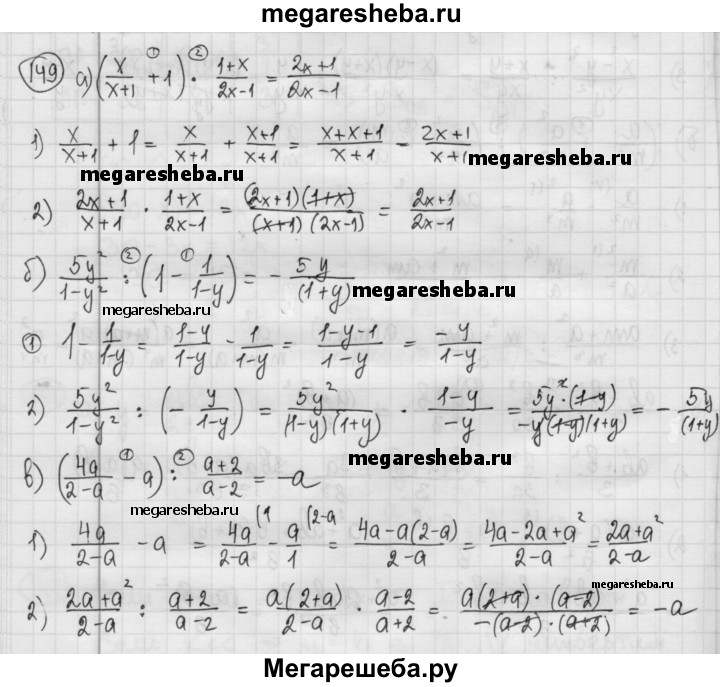 megaresheba.ru
149 а) (x/(x+1) + 1)① ·② (1+x)/(2x-1) = (2x+1)/(2x-1)
1) x/(x+1) + 1 = x/(x+1) + (x+1)/(x+1) = (x+x+1)/(x+1) = (2x+1)/(x+1)
megaresheba.ru megaresheba.ru
2) (2x+1)/(x+1) · (1+x)/(2x-1) = (2x+1)(1+x)/(x+1)(2x-1) = (2x+1)/(2x-1)
б) 5y²/(1-y²) :② (1 -① 1/(1-y)) = - 5y/(1+y)
megaresheba.ru megaresheba.ru
① 1 - 1/(1-y) = (1-y)/(1-y) - 1/(1-y) = (1-y-1)/(1-y) = -y/(1-y)
2) 5y²/(1-y²) : (- y/(1-y)) = 5y²/(1-y)(1+y) · (1-y)/-y = 5y²·(1-y)/-y(1-y)(1+y) = - 5y/(1+y)
megaresheba.ru
в) (4a/(2-a) -① a) :② (a+2)/(a-2) = -a
megaresheba.ru
1) 4a/(2-a) - a = 4a/(2-a) (1 - a/1 (2-a = (4a-a(2-a))/(2-a) = (4a-2a+a²)/(2-a) = (2a+a²)/(2-a)
megaresheba.ru
2) (2a+a²)/(2-a) : (a+2)/(a-2) = a(2+a)/(2-a) · (a-2)/(a+2) = a(2+a)·(a-2)/-(a-2)·(a+2) = -a
Мегарешеба.ру